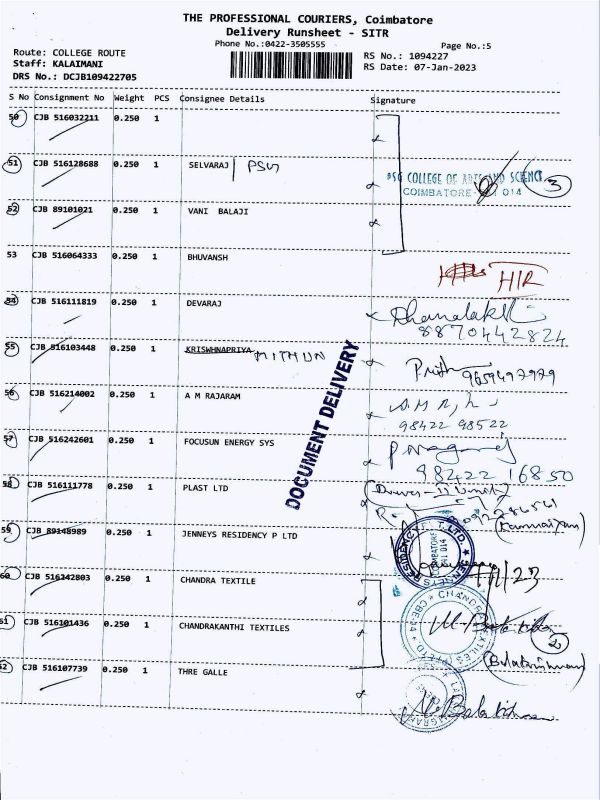 THE PROFESSIONAL COURIERS, Coimbatore
Delivery Runsheet - SITR
Phone No.:0422-3505555
Page No.:5
Route: COLLEGE ROUTE
RS No.: 1094227
Staff: KALAIMANI
RS Date: 07-Jan-2023
DRS No.: DCJB109422705
S No Consignment No Weight PCS Consignee Details Signature
50 CJB 516032211 0.250 1
51 CJB 516128688 0.250 1 SELVARAJ PSG
PSG COLLEGE OF ARTS AND SCIENCE 3
COIMBATORE 014
52 CJB 89101021 0.250 1 VANI BALAJI
53 CJB 516064333 0.250 1 BHUVANSH
H/R
54 CJB 516111819 0.250 1 DEVARAJ
8870442824
55 CJB 516103448 0.250 1 KRISWHNAPRIYA MITHUN
9659497979
56 CJB 516214002 0.250 1 A M RAJARAM
98422 98522
57 CJB 516242601 0.250 1 FOCUSUN ENERGY SYS
98422 16850
58 CJB 516111778 0.250 1 PLAST LTD
59 CJB 89148989 0.250 1 JENNEYS RESIDENCY P LTD
60 CJB 516242803 0.250 1 CHANDRA TEXTILE
61 CJB 516101436 0.250 1 CHANDRAKANTHI TEXTILES
2
(Balakrishnan)
62 CJB 516107739 0.250 1 THRE GALLE
DOCUMENT DELIVERY